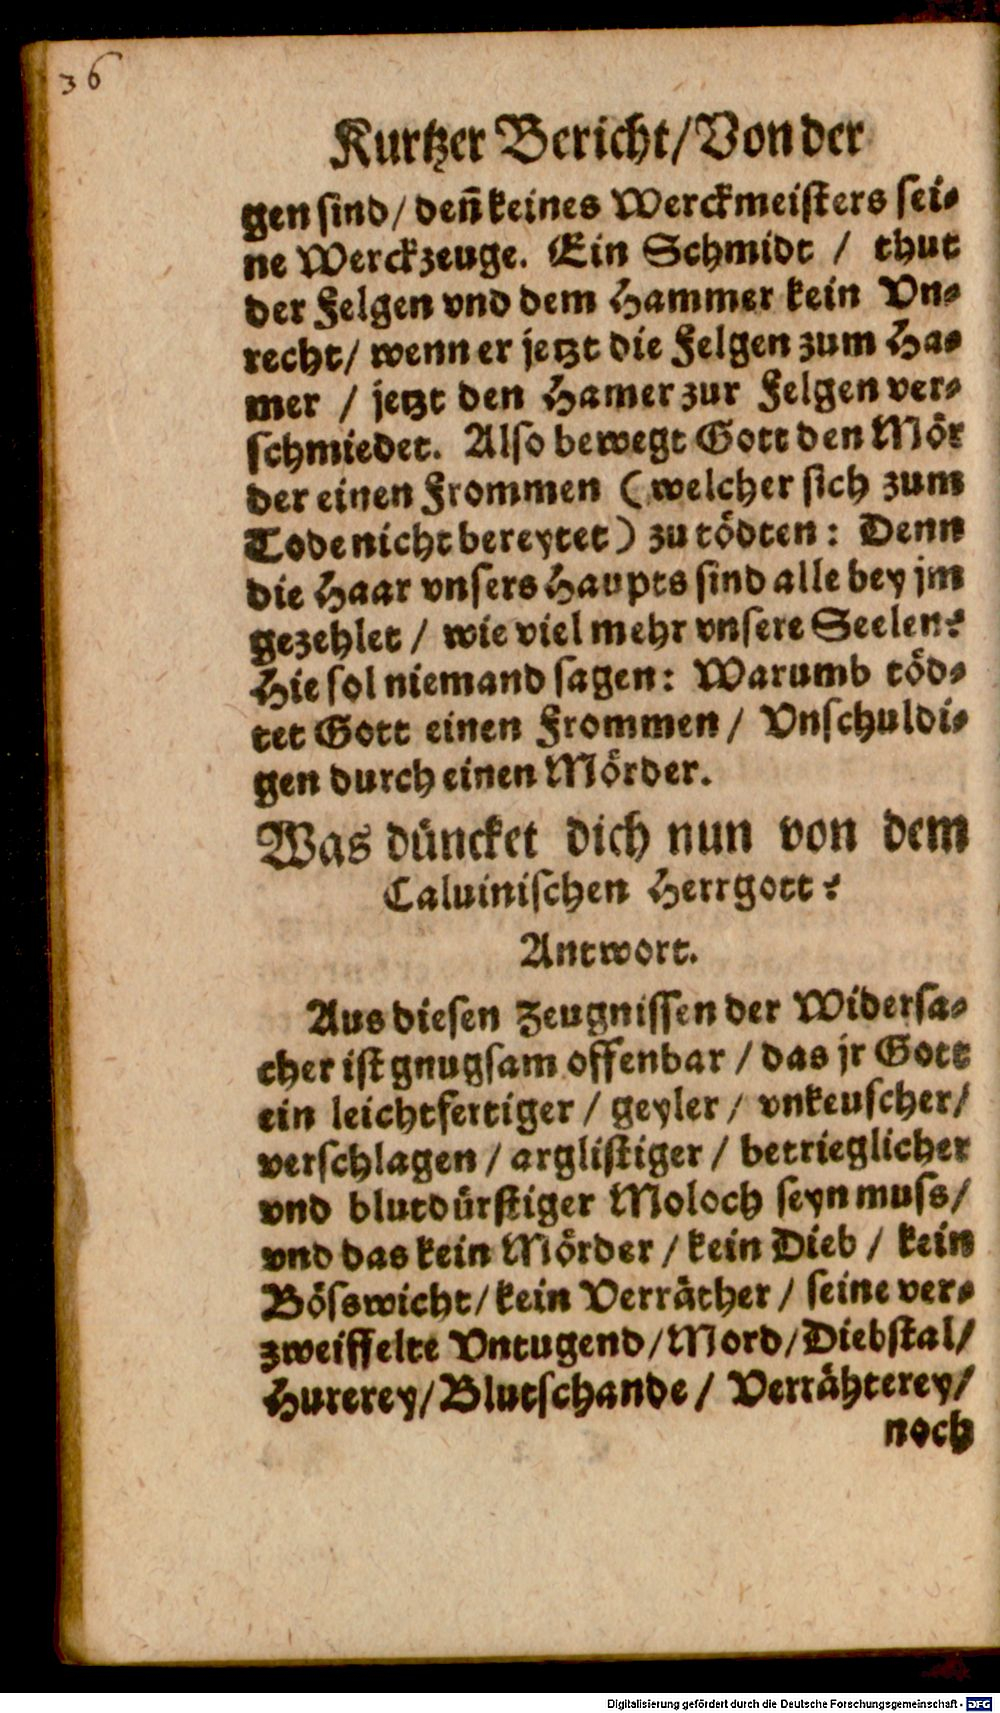 36
Kurtzer Bericht/Von der
gen sind/ deñ keines Werckmeisters sei-
ne Werckzeuge. Ein Schmidt / thut
der Felgen vnd dem Hammer kein Vn-
recht/ wenn er jetzt die Felgen zum Ha-
mer / jetzt den Hamer zur Felgen ver-
schmiedet. Also bewegt Gott den Mör
der einen Frommen (welcher sich zum
Tode nicht bereytet) zu tödten: Denn
die Haar vnsers Haupts sind alle bey jm
gezehlet / wie viel mehr vnsere Seelen?
Hie sol niemand sagen: Warumb töd-
tet Gott einen Frommen / Vnschuldi-
gen durch einen Mörder.
Was düncket dich nun von dem
Caluinischen Herrgott?
Antwort.
Aus diesen Zeugnissen der Widersa-
cher ist gnugsam offenbar / das jr Gott
ein leichtfertiger / geyler / vnkeuscher/
verschlagen / arglistiger / betrieglicher
vnd blutdürstiger Moloch seyn muss/
vnd das kein Mörder / kein Dieb / kein
Bösswicht/ kein Verräther / seine ver-
zweiffelte Vntugend/Mord/Diebstal/
Hurerey/Blutschande / Verrähterey/
noch
Digitalisierung gefördert durch die Deutsche Forschungsgemeinschaft - DFG